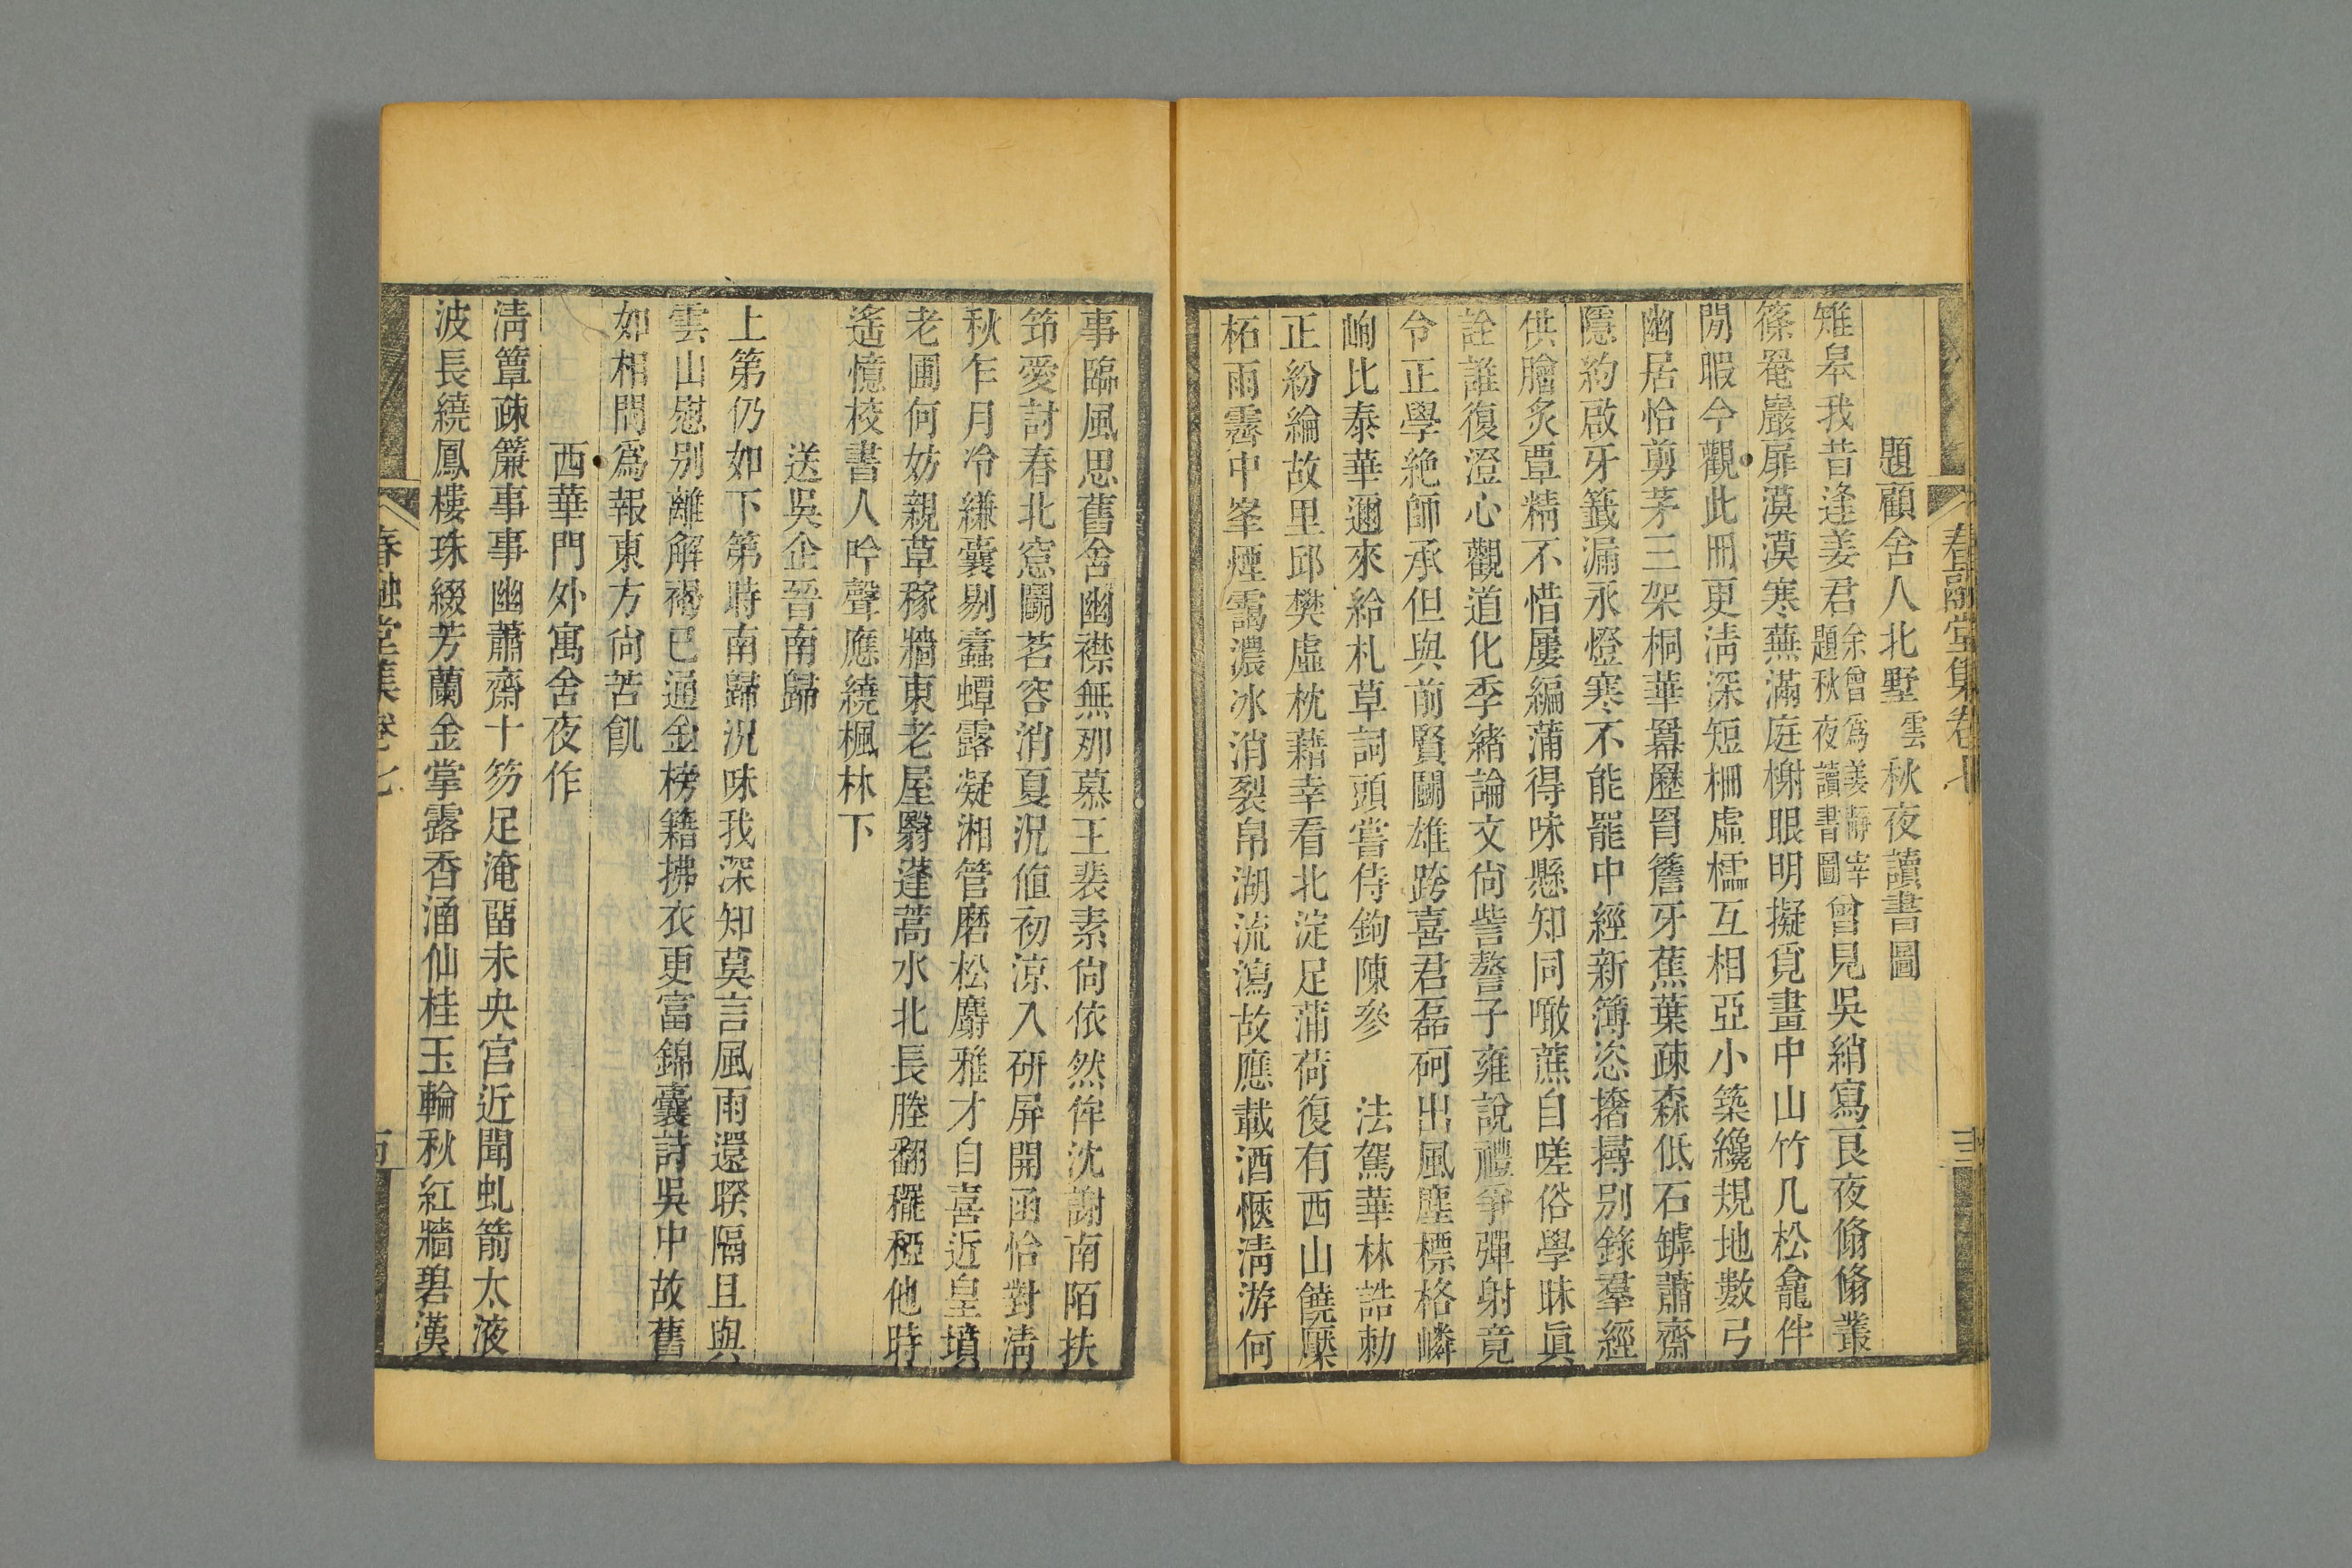 春融堂集卷七
題顧舍人北墅雲秋夜讀書圖
雉皋我昔逢姜君余曾爲姜靜宰題秋夜讀書圖曾見吳綃寫良夜翛翛叢
篠罨巖扉漠漠寒蕪滿庭榭眼明擬覓畫中山竹几松龕伴
閒暇今觀此冊更清深短柵虛櫺互相亞小築纔規地數弓
幽居恰剪茅三架桐華羃歷罥簷牙蕉葉疎森低石罅蕭齋
隱約啟牙籤漏永燈寒不能罷中經新簿恣撦撏別錄羣經
供膾炙覃精不惜屢編蒲得味懸知同噉蔗自嗟俗學昧眞
詮誰復澄心觀道化季緒論文尙訾謷子雍說禮爭彈射竟
令正學絶師承但與前賢鬭雄跨喜君磊砢出風塵標格嶙
峋比泰華邇來給札草詞頭嘗侍鉤陳參　法駕華林誥勅
正紛綸故里邱樊虛枕藉幸看北淀足蒲荷復有西山饒檿
柘雨霽中峯煙靄濃冰消裂帛湖流瀉故應載酒愜淸游何
事臨風思舊舍幽襟無那慕王裴素尙依然侔沈謝南陌扶
筇愛討春北窓鬭茗容消夏況値初涼入研屏開函恰對淸
秋乍月冷縑囊剔蠹蟫露凝湘管磨松麝雅才自喜近皇墳
老圃何妨親草稼牆東老屋翳蓬蒿水北長塍翻䆉稏他時
遙憶校書人吟聲應繞楓林下
送吳企晉南歸
上第仍如下第時南歸況味我深知莫言風雨還暌隔且與
雲山慰別離解褐已通金榜籍拂衣更富錦囊詩吳中故舊
如相問爲報東方尙苦飢
西華門外寓舍夜作
淸簟疎簾事事幽蕭齋十笏足淹留未央宮近聞虬箭太液
波長繞鳳樓珠綴芳蘭金掌露香涵仙桂玉輪秋紅牆碧漢
春融堂集卷七